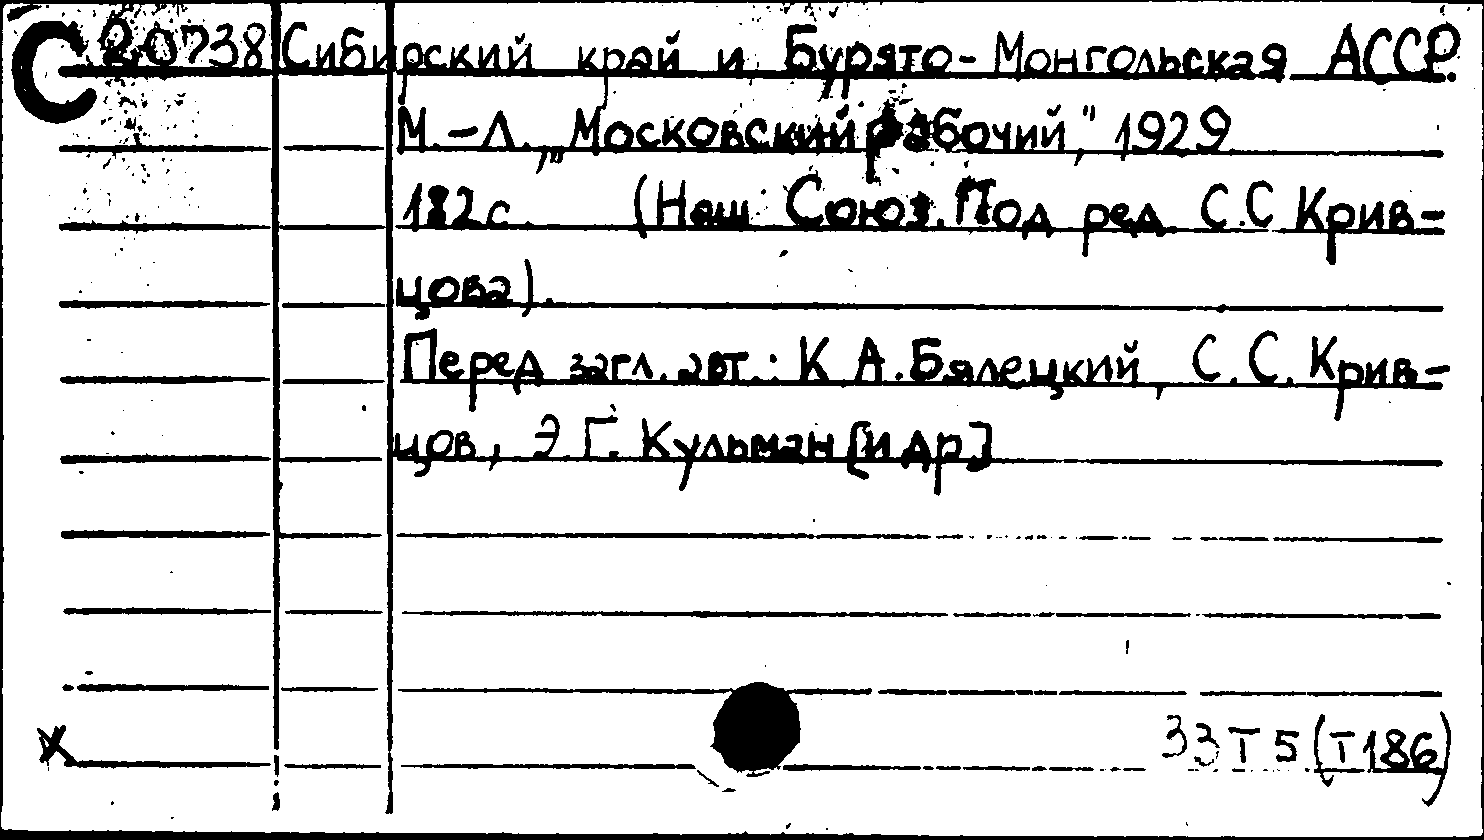 С 20738 Сибирский край и Бурято-Монгольская АССР.
М.-Л., „Московский рабочий," 1929
182 с. (Наш Союз. Под ред. С.С Крив=
цова).
Перед загл. авт.: К А. Бялецкий, С. С. Крив=
цов, Э Г. Кульман [и др]
x 33 Т 5 (Т186)